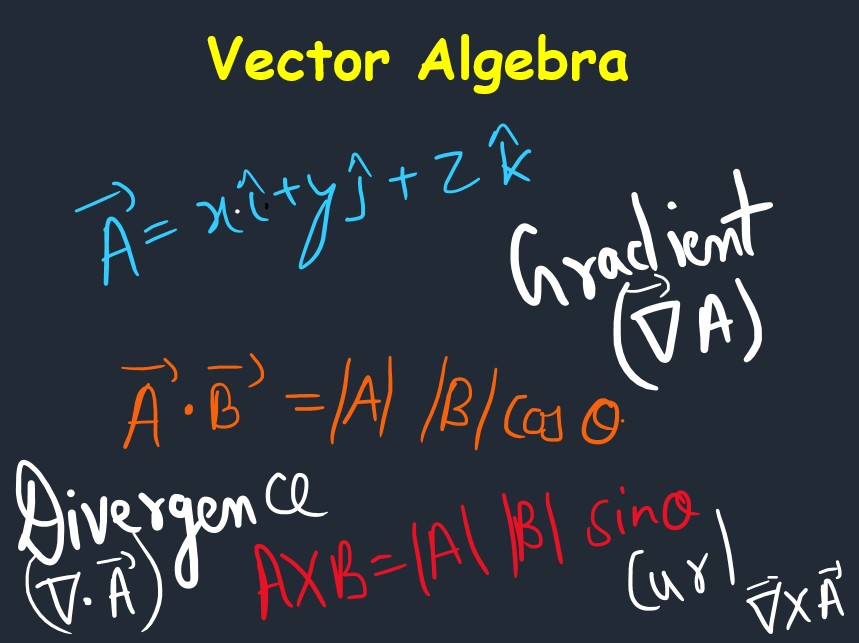 Vector Algebra
A⃗ = x î + y ĵ + z k̂
Gradient
(∇⃗ A)
A⃗ · B⃗ = |A| |B| cos θ
Divergence
(∇ · A⃗)
A X B = |A| |B| sin θ
Curl
∇⃗ X A⃗